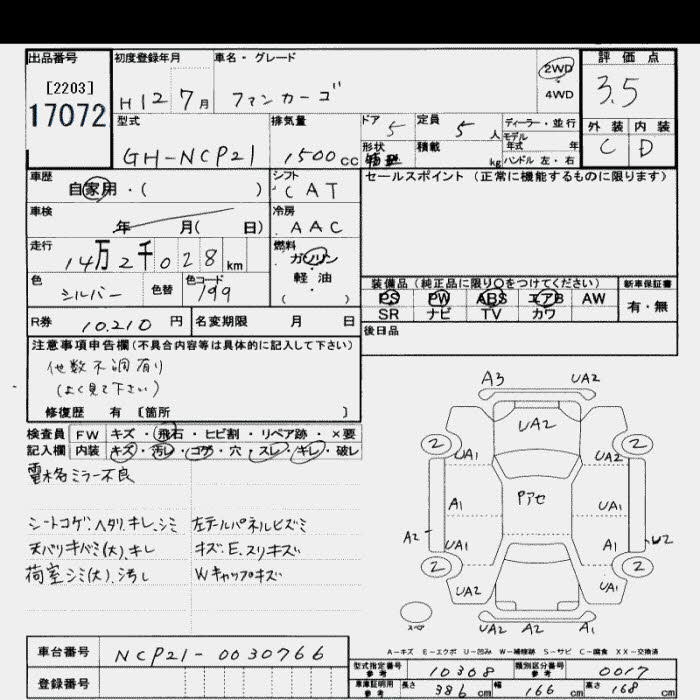 出品番号 初度登録年月 車名・グレード 2WD 4WD 評価点
[2203]
17072
H12 7月 ファンカーゴ 3.5
型式 排気量 ドア 5 定員 5人 ディーラー・並行 外装 内装
GH-NCP21 1500cc 形状 積載 kg モデル年式 年 ハンドル 左・右 C D
車歴 シフト セールスポイント(正常に機能するものに限ります)
自家用・( ) CAT
車検 冷房
年 月( 日) AAC
走行 燃料
14万2千028km ガソリン
色 色替 色コード 軽油
シルバー 199 ( )
装備品(純正品に限り○をつけてください) 新車保証書
PS PW ABS エアB AW 有・無
SR ナビ TV カワ
R券 10.210円 名変期限 月 日
後日品
注意事項申告欄(不具合内容等は具体的に記入して下さい)
他数不調有り
(よく見て下さい)
修復歴 有 [箇所 ]
検査員 FW キズ・飛石・ヒビ割・リペア跡・×要
記入欄 内装 キズ・汚レ・コゲ・穴・スレ・キレ・破レ
電格ミラー不良
シートコゲ.ヘタリ.キレ.シミ 左テールパネルヒズミ
天バリキバミ(大).キレ キズ.E.スリキズ
荷室シミ(大).汚レ Wキャップキズ
A3 UA2
UA2
2 2
UA1 UA2
A1 Pアセ UA1
A2 UA1 A1 W2
2 2
UA2 UA1
スペア UA2 A2 A1
A-キズ E-エクボ U-凹み W-補修跡 S-サビ C-腐食 XX-交換済
車台番号 NCP21-0030766
登録番号
型式指定番号 参考 10308 類別区分番号 参考 0017
車庫証明用 参考 長さ 386cm 幅 166cm 高さ 168cm